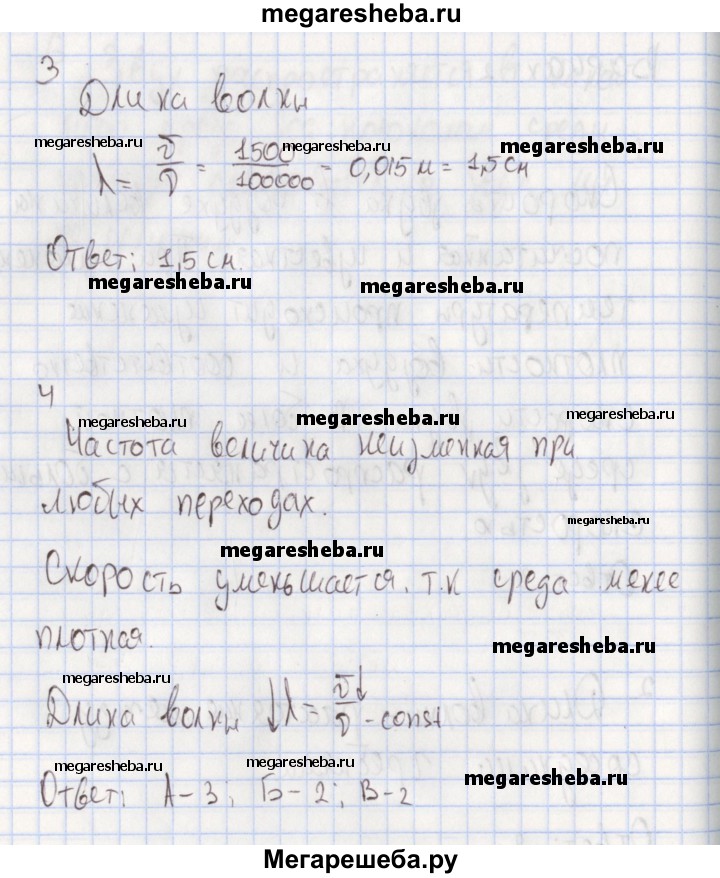 megaresheba.ru
3
Длина волны
megaresheba.ru megaresheba.ru megaresheba.ru
λ = v/ν = 1500/100000 = 0,015 м = 1,5 см
Ответ: 1,5 см.
megaresheba.ru megaresheba.ru
4
megaresheba.ru megaresheba.ru megaresheba.ru
Частота величина неизменная при
любых переходах.
megaresheba.ru
megaresheba.ru
Скорость уменьшается, т.к среда менее
плотная.
megaresheba.ru
megaresheba.ru
Длина волны ↓λ = v↓/ν - const
megaresheba.ru megaresheba.ru
Ответ: А-3; Б-2; В-2
Мегарешеба.ру